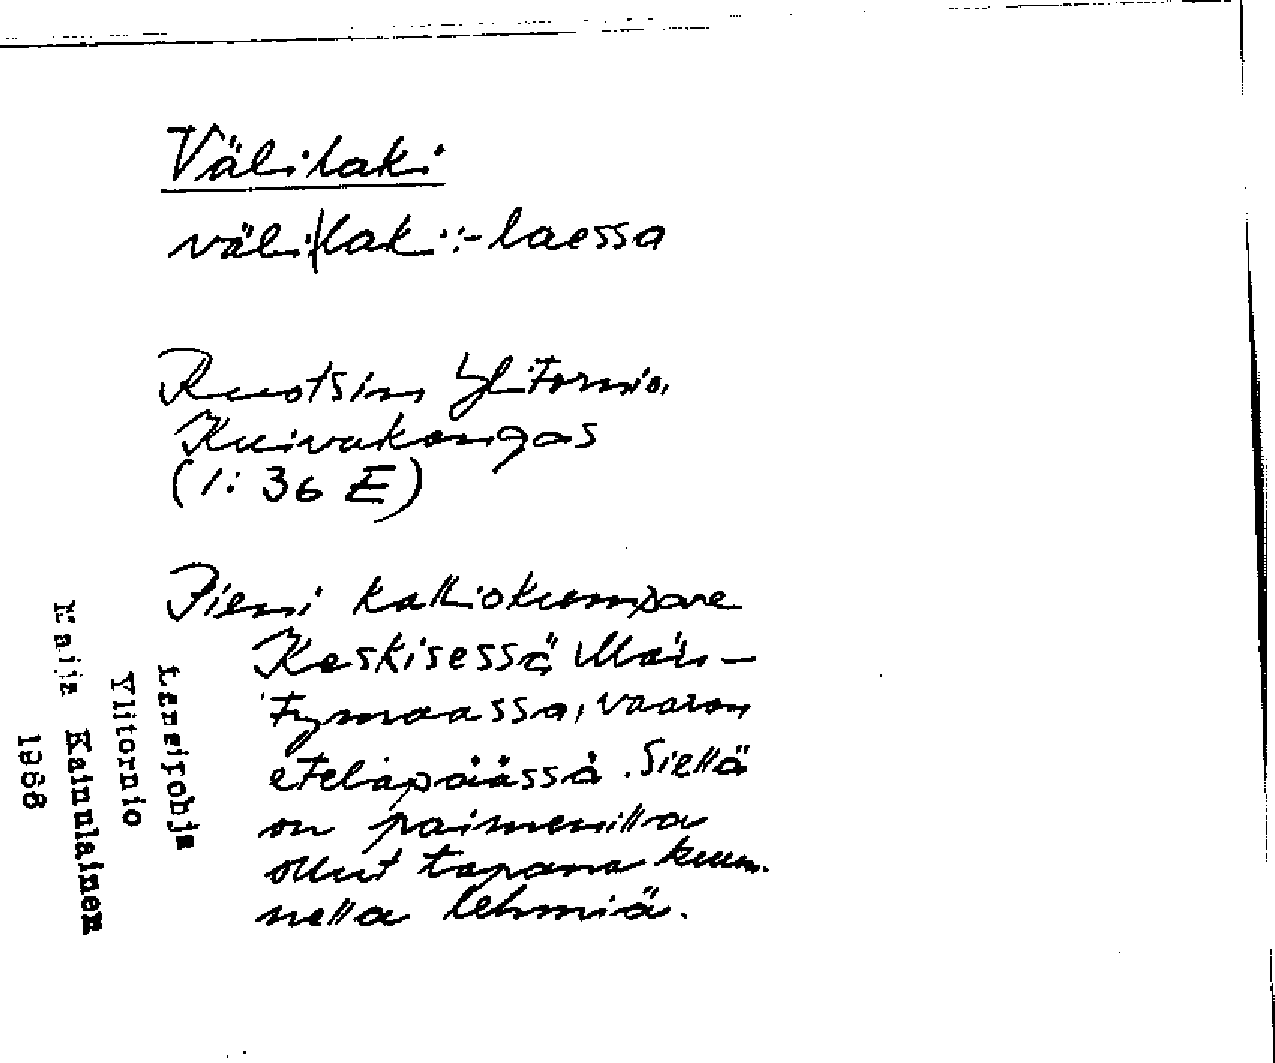 Välilaki
väli|laki:-laessa
Ruotsin Ylitornio,
Kuivakangas
(1: 36 E)
Pieni kalliokumpare
Keskisessä Män-
tymaassa, vaaran
eteläpäässä. Siellä
on paimenilla
ollut tapana kuun-
nella lehmiä.
Länsipohja
Ylitornio
Maija Kainulainen
1968